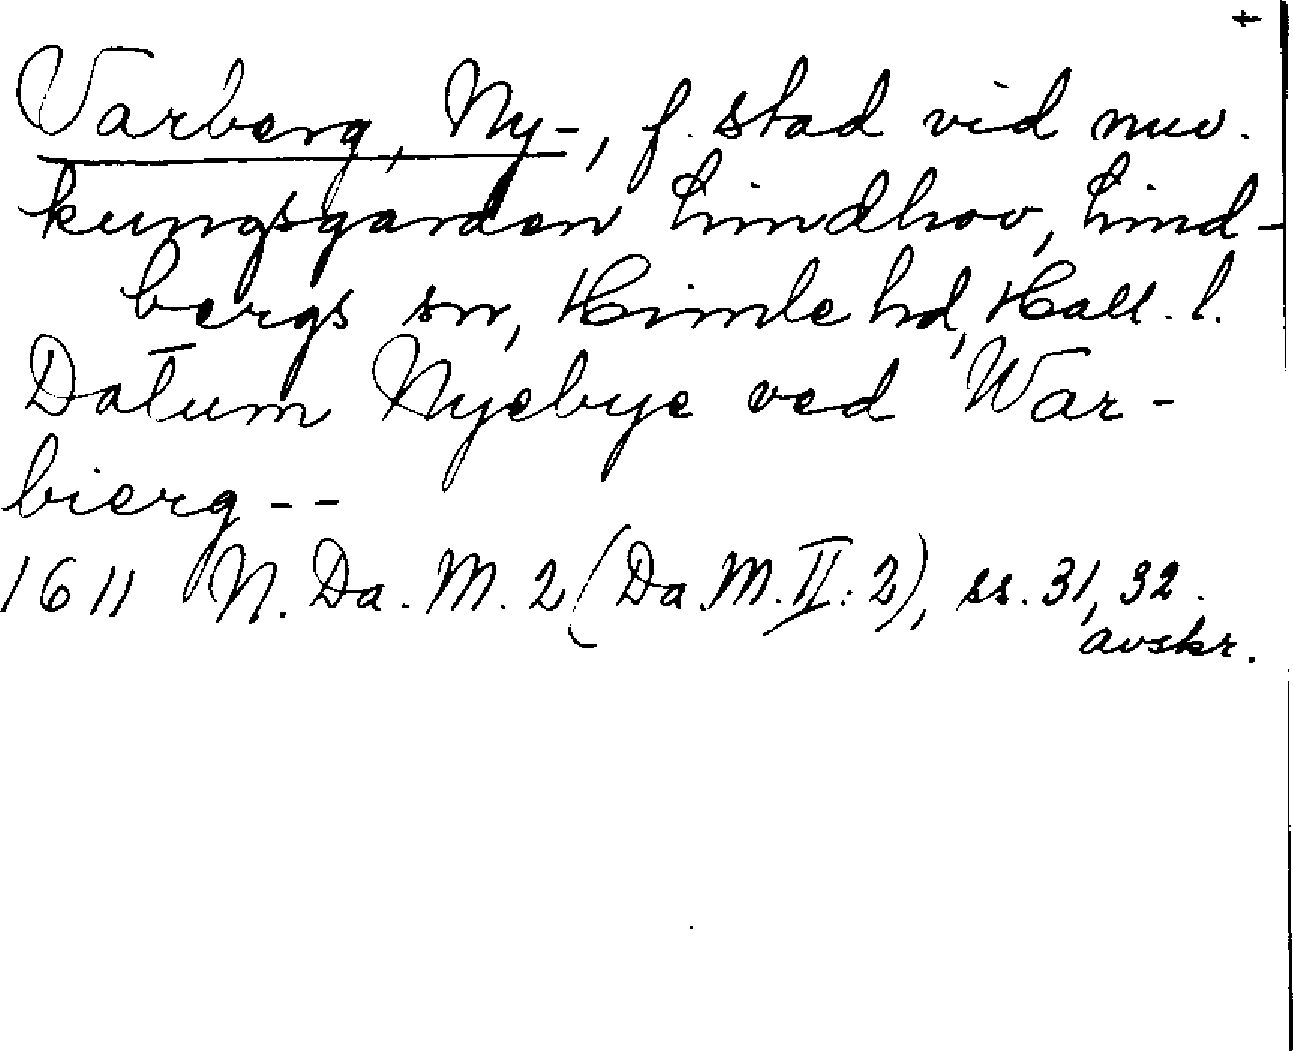 +
Varberg, Ny-, f. stad vid nuv.
kungsgarden Lindhov, Lind-
bergs sn, Himle hd, Hall. l.
Datum Nyebye ved War-
bierg--
1611 N. Da. M. 2 (Da. M. II: 2), ss. 31, 32.
avskr.